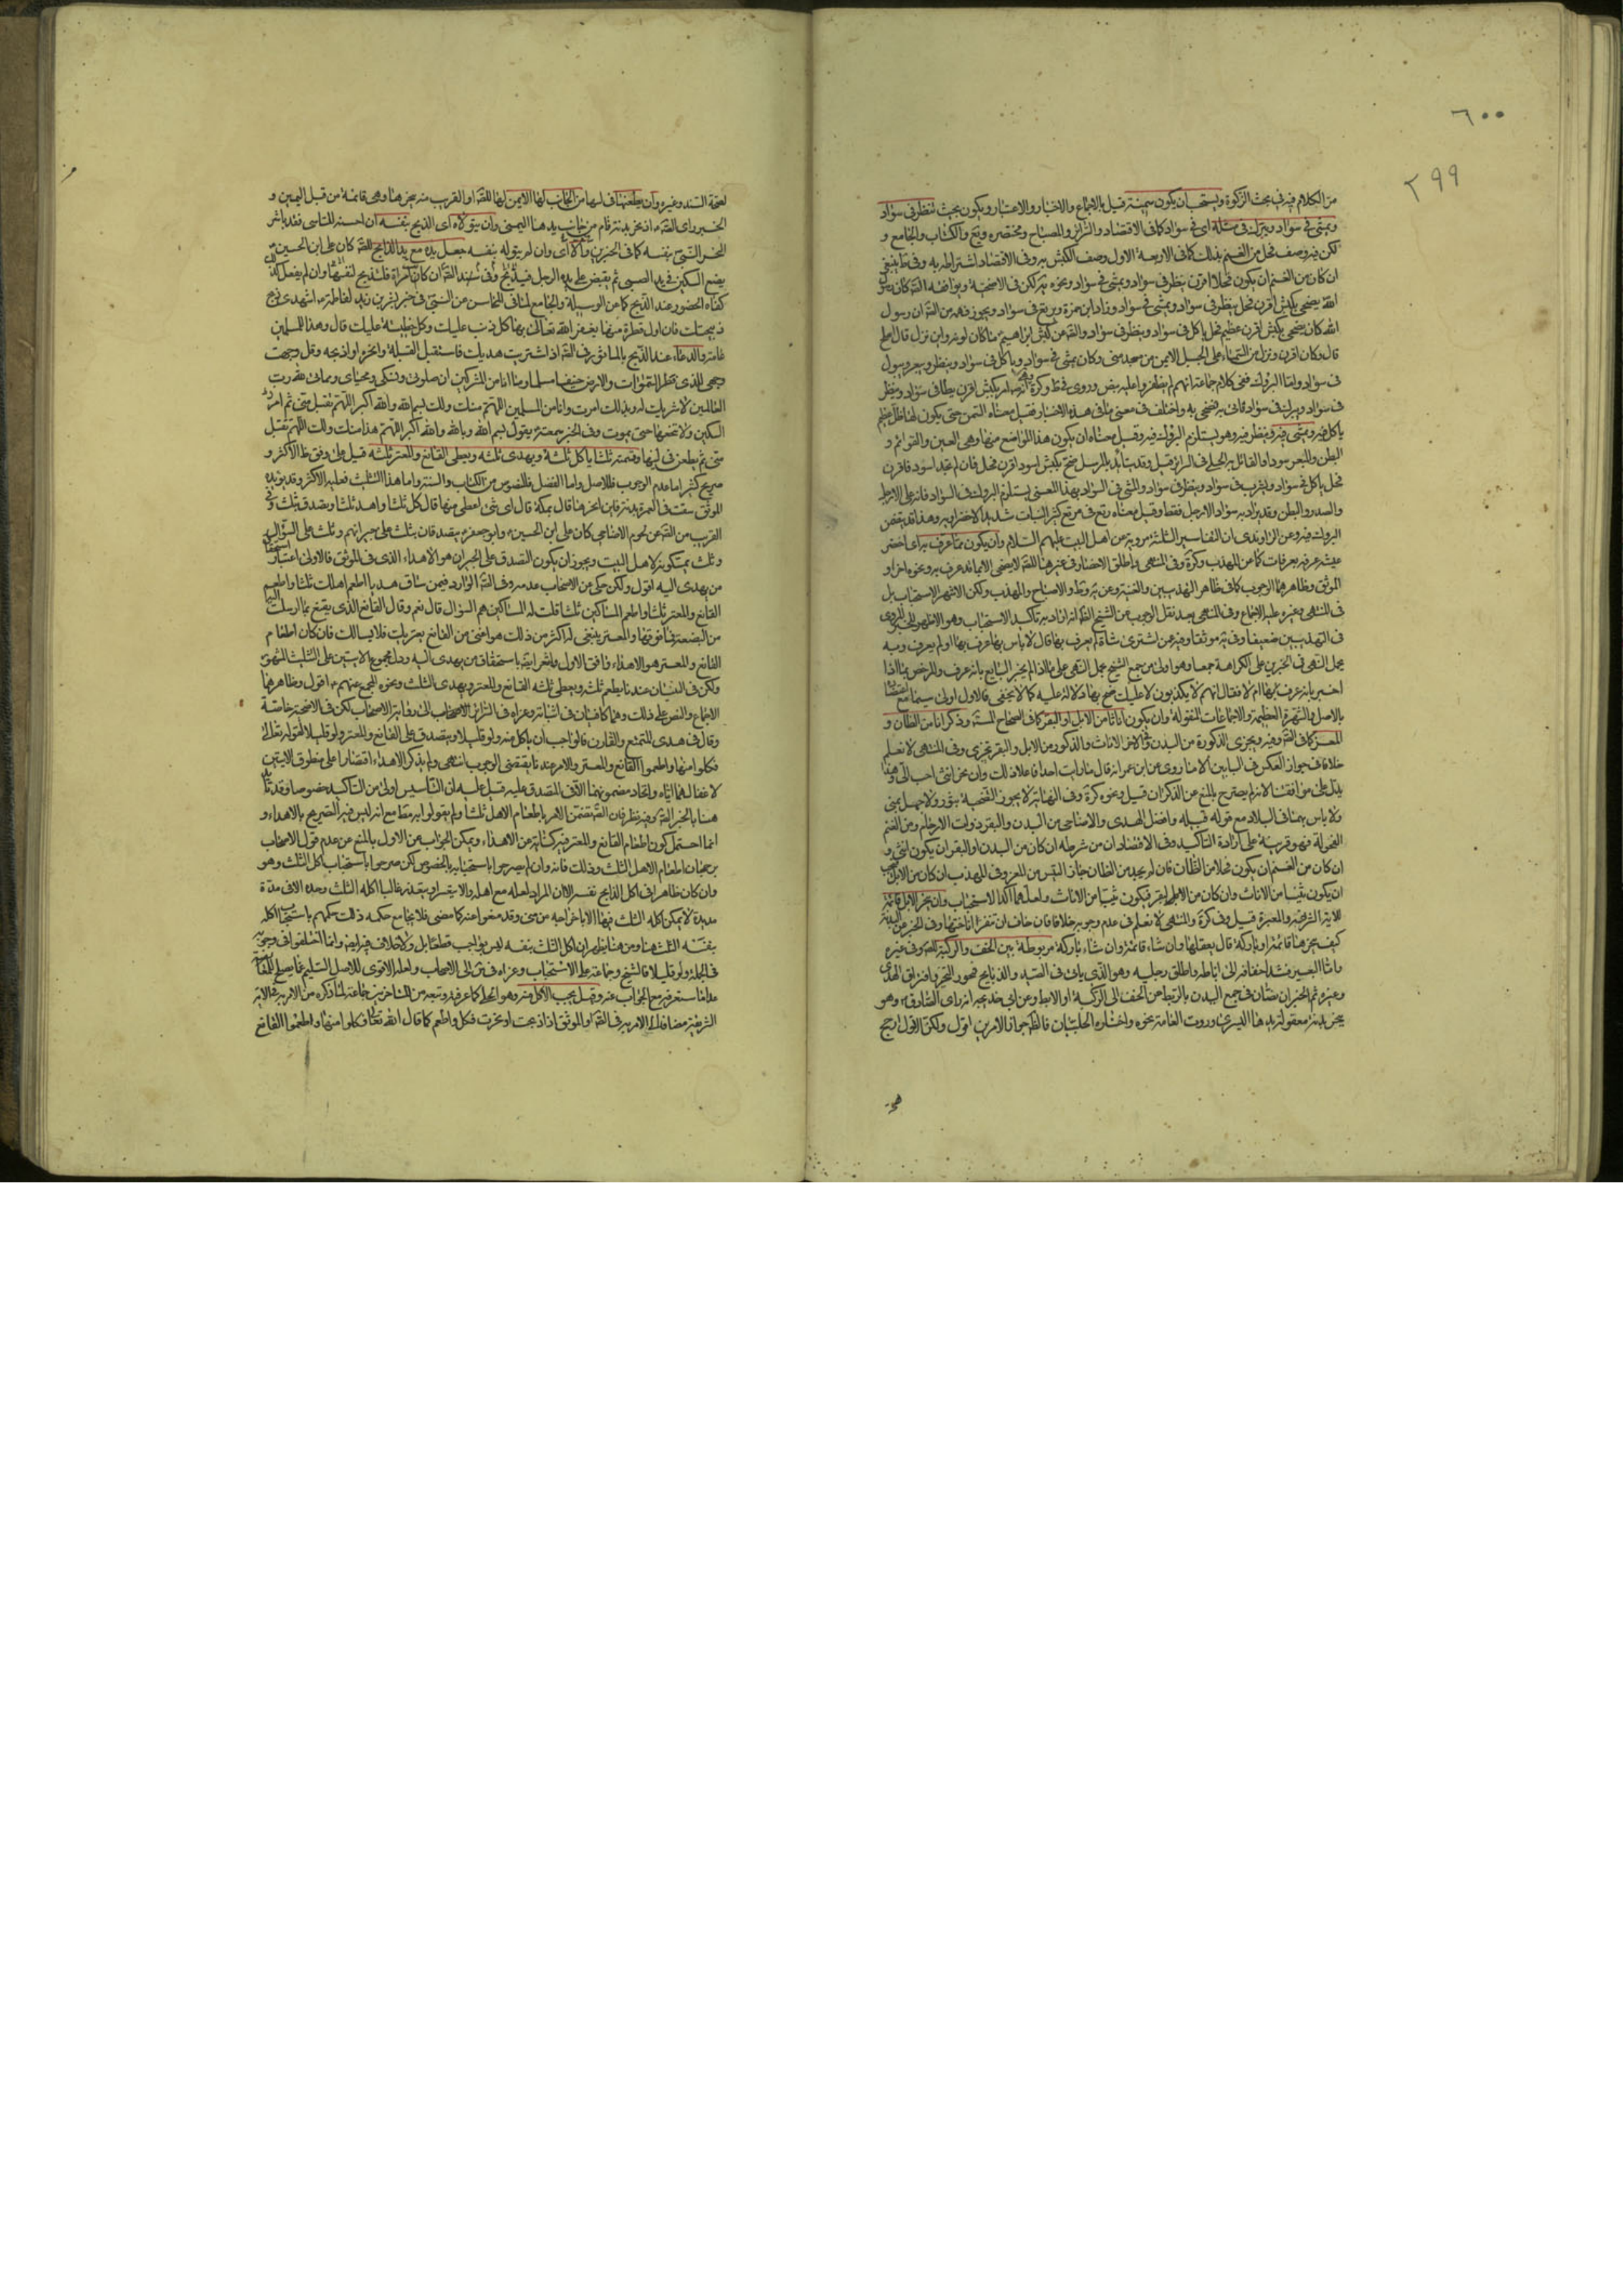 ٦٠٠
٢٩٩
من الكلام فيه في بحث الزكوة ويستحب ان يكون سمينة قيل بالاجماع والاخبار والاعتبار ويكون بحيث تنظر في سواد
وتمشي في سواد وتبرك في مثله اي في سواد كما في الاقتصاد والسرائر والمصباح ومختصره ويع والكتاب والجامع و
لكن فيه وصف فحل من الغنم بذلك كما في الاربعة الاول وصف الكبش به وفي الاقتصاد اشتراطه به وفي ط ينبغي
ان كان من الغنم ان يكون فحلا اقرن ينظر في سواد ويمشي في سواد ونحوه ية لكن في الاضحية ويوافقه كان رسول
الله يضحي بكبش اقرن فحل ينظر في سواد ويمشي في سواد وزاد ابن حمزة ويرتع في سواد ان رسول
الله كان يضحي بكبش اقرن عظيم فحل ياكل في سواد وينظر في سواد عن كبش ابراهيم ما كان لونه واين نزل قال املح
قال وكان اقرن ونزل من السماء على الجبل الايمن من مسجد منى وكان يمشي في سواد وياكل في سواد وينظر ويبعر ويبول
في سواد واما البروك ففي كلام جماعة انهم لم يظفروا عليه بنص بكبش اقرن يطا في سواد وينظر
في سواد ويبرك في سواد فاتي به فضحى به واختلف في معنى ما في هذه الاخبار فقيل معناه السمن حتى يكون لها ظل عظيم
ياكل فيه ويمشي فيه وينظر فيه وهو يستلزم البروك فيه وقيل معناه ان يكون هذه المواضع منها وهي العين والقوائم و
البطن والمبعر سودا والقائل به الحلي في السرائر قيل وقد يتايد بالمرسل ضح بكبش اسود اقرن فحل فان لم تجد اسود فاقرن
فحل ياكل في سواد ويشرب في سواد وينظر في سواد والمشي في السواد بهذا المعنى يستلزم البروك في السواد فانه على الارجل
والصدر والبطن وقد يراد به سواد الارجل فقط وقيل معناه رتع في مرتع كثير النبات شديد الاخضرار به وهذا قد يتضمن
البروك فيه وعن الراوندي ان التفاسير الثلثة مروية عن اهل البيت عليهم السلام وان يكون مما عرف به اي احضر
عشية عرفة بعرفات كما عن المهذب وكرة وفي المنتهى واطلق الاحضار في غيرها لا يضحى الا بما قد عرف به ونحوه اخر او
الموثق وظاهرهما الوجوب كما في ظاهر المهذبين والغنية وعن ية وط والاصباح والمهذب ولكن الاشهر الاستحباب بل
في المنتهى وغيره عليه الاجماع وفي المنتهى بعد نقل الوجوب عن الشيخ الظ انه اراد به تاكيد الاستحباب وهو الاظهر للخبر المروي
في التهذيبين ضعيفا وفي يه موثقا وفيه عمن اشترى شاة لم يعرف بها قال لا باس بها عرف بها او لم يعرف وبه
يحمل النهي في الخبرين على الكراهة جمعا وهو اولى من جمع الشيخ بحمل النهي على ما اذا لم يخبر البايع بانه عرف والرخص بما اذا
اخبر بانه عرف بها لانهم لا يكذبون لا عليك ضح بها ولا دلالة عليه كما لا يخفى فالاول اولى سيما مع
بالاصل والشهرة العظيمة والاجماعات المنقولة وان يكون اناثا من الابل او البقر كما في الصحاح المستفيضة وذكرانا من الضان و
المعز كما في وفيه ويجزي الذكورة من البدن والاخر الاناث والذكور من الابل والبقر تجزي وفي المنتهى لا نعلم
خلافا في جواز العكس في البابين الا ما روي عن ابن عمر انه قال ما رايت احدا فاعلا ذلك وان انحر انثى احب الي وهذا
يدل على موافقتنا لانه لم يصرح بالمنع عن الذكران قيل ونحوه كرة وفي النهاية لا يجوز التضحية بثور ولا جمل بمنى
ولا باس بهما في البلاد مع قوله قبيله وافضل الهدي والاضاحي من البدن والبقر ذوات الارحام ومن الغنم
الفحولة فهو قرينة على ارادة التاكيد وفي الاقتصاد ان من شرطه ان كان من البدن او البقر ان يكون انثى و
ان كان من الغنم ان يكون فحلا من الضان فان لم يجد من الضان جاز التيس من المعز وفي المهذب ان كان من الابل
ان يكون ثنيا من الاناث وان كان من البقر فيكون ثنيا من الاناث ولعلهما اكدا الاستحباب وان ينحر الابل قائمة
للاية الشريفة والمعتبرة قيل وفي كرة والمنتهى لا نعلم في عدم وجوبه خلافا فان خاف ان تنفر اناخها وفي الخبر عن البدنة
كيف ينحرها قائمة او باركة قال يعقلها وان شاء قائمة وان شاء باركة مربوطة بين الخف والركبة وفي غيره
واما البعير فشد اخفافه الى اباطه واطلق رجليه وهو الذي ياتي في الصيد والذبايح
وغيره ثم الخبران نصان في جمع اليدين بالربط من الخف الى الركبة او الابط وعن ابي خديجة انه راى الصادق وهو
ينحر بدنة معقولة يدها اليسرى وروت العامة نحوه واختاره الحلبيان فالظ جواز الامرين اقول ولكن الاول ارجح
لصحة السند وغيره وان يطعنها في لبتها من الجانب لها الايمن لها او القريب منه ينحرها وهي قائمة من قبل اليمين و
الخبر راى اذ نحر بدنته قام من جانب يدها اليمنى وان يتولاه اي الذبح بنفسه ان احسنه للتاسي فقد باشر
النحر النبي بنفسه كما في الخبرين والا اي وان لم يتوله بنفسه جعل يده مع يد الذابح كان علي بن الحسين
يضع السكين في يد الصبي ثم يقبض على يده الرجل فيذبح وفي ان كان امراة فلتذبح لنفسها وان لم يفعل
كفاه الحضور عند الذبح كما عن الوسيلة والجامع لما في المحاسن عن النبي في خبر بشر بن زيد لفاطمة اشهدي ذبح
ذبيحتك فان اول قطرة منها يغفر الله تعالى بها كل ذنب عليك وكل خطيئة عليك قال وهذا للمسلمين
عامة والدعاء عند الذبح بالماثور في اذا اشتريت هديك فاستقبل القبلة وانحره او اذبحه وقل وجهت
وجهي للذي فطر السموات والارض حنيفا مسلما وما انا من المشركين ان صلوتي ونسكي ومحياي ومماتي لله رب
العالمين لا شريك له وبذلك امرت وانا من المسلمين اللهم منك ولك بسم الله والله اكبر اللهم تقبل مني ثم امر
السكين ولا تنخعها حتى يموت وفي الخبر يقول بسم الله وبالله والله اكبر اللهم هذا منك ولك اللهم تقبل
مني ثم يطعن في لبتها وقسمته ثلثا ياكل ثلثه ويهدي ثلثه ويعطي القانع والمعتر ثلثه قيل على وفق ظ الاكثر و
صريح كثير اما عدم الوجوب فللاصل واما الفضل فللنصوص من الكتاب والسنة واما هذا التثليث فعليه الاكثر وقد يؤيده
الموثق سقت في العمرة بدنة فاين انحرها قال بمكة قال اي شيء اعطي منها قال كل ثلثا واهد ثلثا وتصدق بثلث و
القريب من عن لحوم الاضاحي كان علي بن الحسين وابو جعفر يتصدقان بثلث على جيرانهم وثلث على السؤال
وثلث يمسكونه لاهل البيت ويجوز ان يكون التصدق على الجيران هو الاهداء الذي في الموثق فالاولى اعتبار
من يهدي اليه اقول ولكن حكي عن الاصحاب عدمه وفي الوارد فيمن ساق هديا اطعم اهلك ثلثا واطعم
القانع والمعتر ثلثا واطعم المساكين ثلثا قلت له المساكين هم السؤال قال نعم وقال القانع الذي يقنع بما ارسلت اليه
من البضعة فما فوقها والمعتر ينبغي له اكثر من ذلك هو اغنى من القانع يعتريك فلا يسالك فان كان اطعام
القانع والمعتر هو الاهداء وافق الاول باستحقاق من يهدى اليه ودل مجموع الايتين على التثليث المشهور
ولكن في البنيان عندنا يطعم ثلثه ويعطي ثلثه القانع والمعتر ويهدي الثلث ونحوه المجمع عنهم اقول وظاهرهما
الاجماع والنص على ذلك وهما كافيان في اثباته وعزاه في السرائر الى رواية الاصحاب لكن في الاضحية خاصة
وقال في هدي المتمتع والقارن فالواجب ان ياكل منه ولو قليلا ويتصدق على القانع والمعتر ولو قليلا لقوله تعالى
فكلوا منها واطعموا القانع والمعتر والامر عندنا يقتضي الوجوب انتهى ولم يذكر الاهداء اقتصارا على منطوق الايتين
لاغفالهما اياه واتحاد مضمونهما المتصدق عليه قيل عليه ان التاسيس اولى من التاكيد خصوصا وقد
هنا بالخبر وفيه نظر فان تضمن الامر باطعام الاهل ثلثا ولم يقولوا به قطع مع انه ليس فيه التصريح بالاهداء و
انما احتمل كون اطعام القانع والمعتر فيه كناية عن الاهداء ويمكن الجواب عن الاول بالمنع من عدم قول الاصحاب
برجحان اطعام الاهل الثلث وذلك فانه وان لم يصرحوا باستحبابه بالخصوص لكن صرحوا باستحباب اكل الثلث وهو
وان كان ظاهرا في اكل الذابح نفسه الا ان المراد لعله مع اهله والا يتعسر او يتعذر غالبا اكله الثلث وحده الا في مدة
مديدة لا يمكن اكله الثلث فيها الا باخراجه من منى وقد منعوا عنه كما مضى فلا يجامع حكمه ذلك حكمهم باستحباب اكله
بنفسه الثلث هنا ومن هنا يظهر ان اكل الثلث بنفسه ليس بواجب قطعا بل ولا خلاف فيه ايضا وانما اختلفوا في وجوبه
في الجملة ولو قليلا فالشيخ وجماعة على الاستحباب وعزاه في س الى الاصحاب ولعله الاقوى للاصل السليم عما يصلح للمعارضة
عدا ما ستعرفه مع الجواب عنه وقيل يجب الاكل منه وهو الحلي كما عرفت وتبعه من المتاخرين جماعة لما ذكره من الامر به في الاية
الشريفة مضافا الى الامر به في والموثق اذا ذبحت او نحرت فكل واطعم كما قال الله تعالى فكلوا منها واطعموا القانع